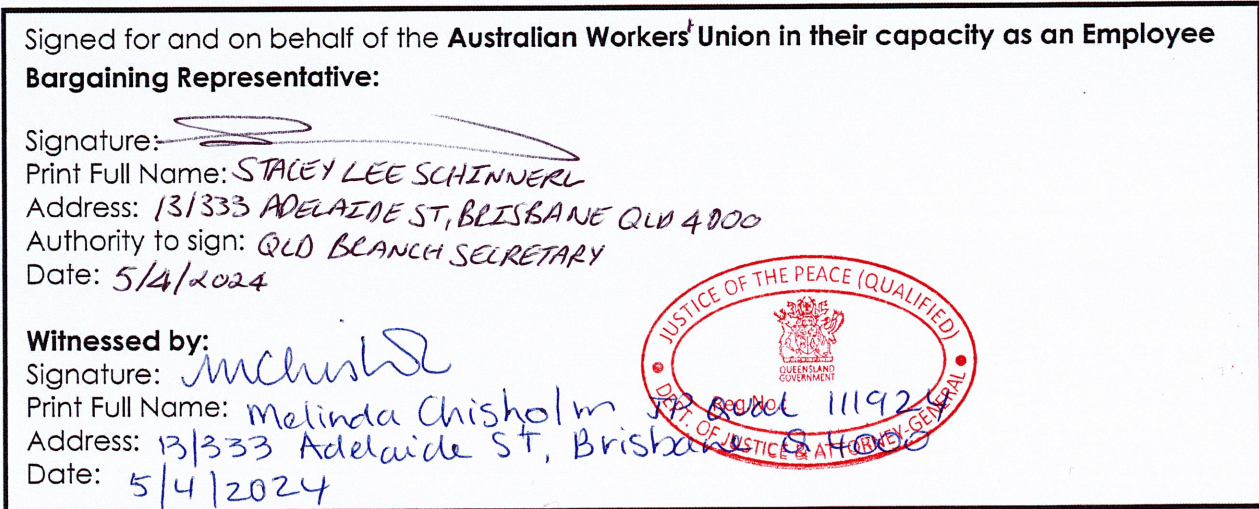 Signed for and on behalf of the Australian Workers' Union in their capacity as an Employee
Bargaining Representative:
Signature:
Print Full Name: STACEY LEE SCHINNERL
Address: 13/333 ADELAIDE ST, BRISBANE QLD 4000
Authority to sign: QLD BRANCH SECRETARY
Date: 5/4/2024
Witnessed by:
Signature: MChisholm
Print Full Name: Melinda Chisholm JP Qual 111924
Address: 13/333 Adelaide ST, Brisbane Q 4000
Date: 5/4/2024
JUSTICE OF THE PEACE (QUALIFIED)
QUEENSLAND
GOVERNMENT
Reg.No.
DEPT. OF JUSTICE & ATTORNEY-GENERAL